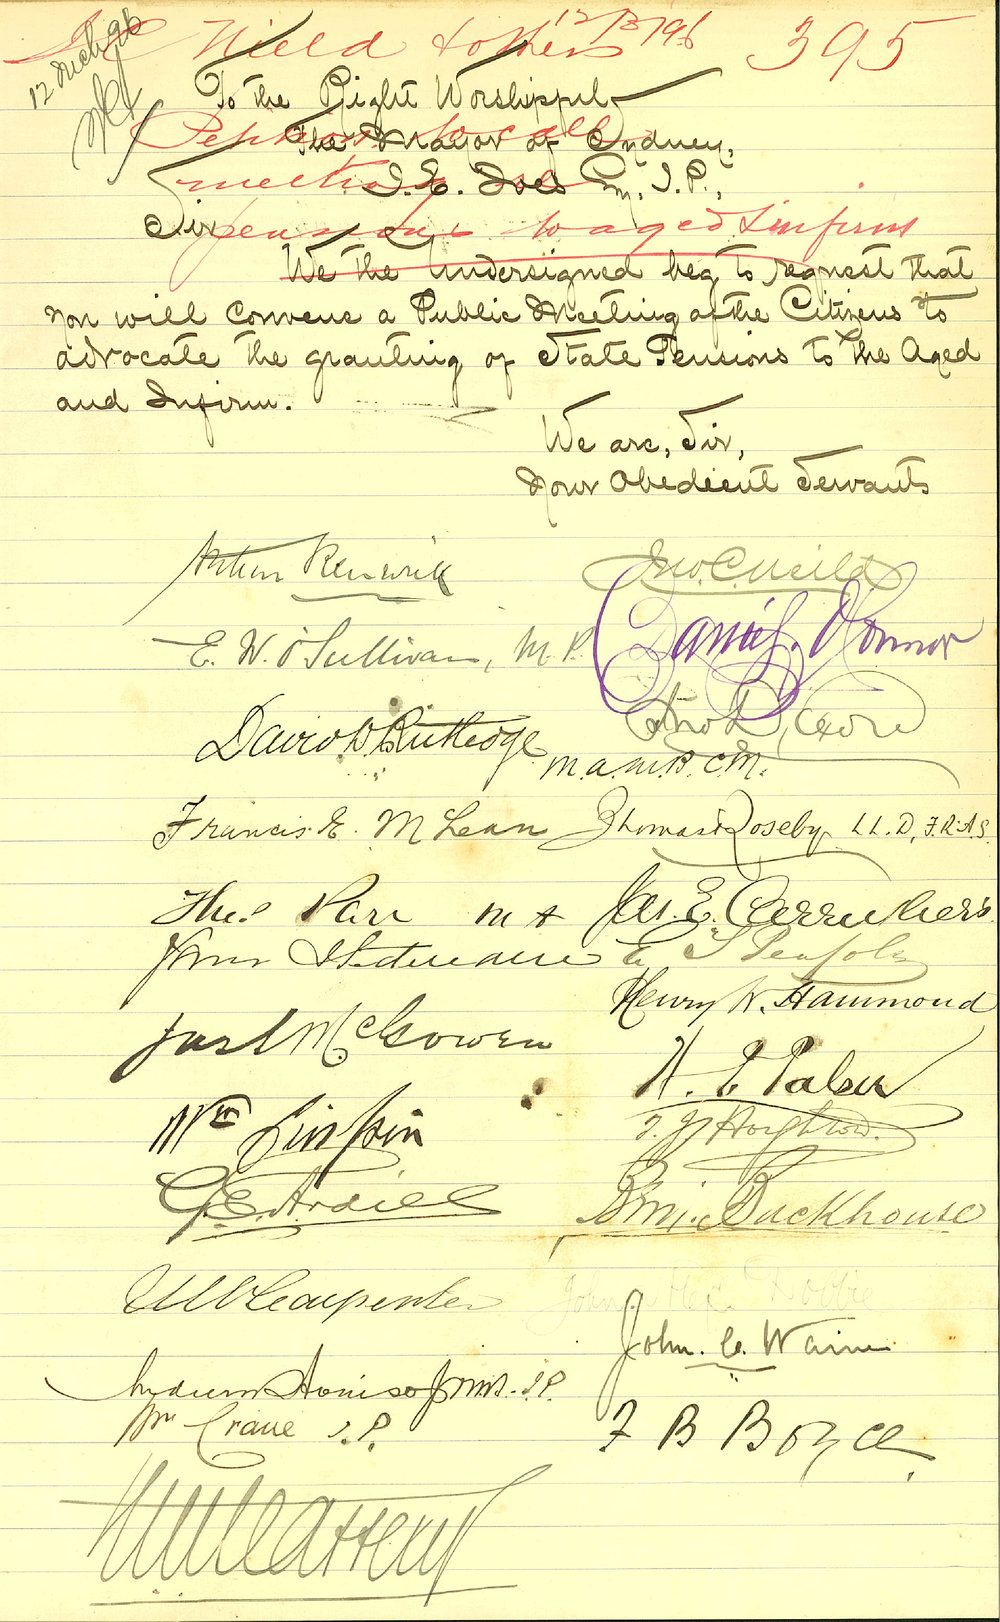 J C Nield & others 12/3/96 395
12 Mch 96
To the Right Worshipful
The Mayor of Sydney,
I. E. Ives Esq. J.P.,
Petition to call
meeting re
pensions to aged & infirm
Sir
We the Undersigned beg to request that
you will convene a Public Meeting of the Citizens to
advocate the granting of State Pensions to the Aged
and Infirm.
We are, Sir,
Your Obedient Servants
Arthur Renwick
Jno. C. Neild
E. W. O'Sullivan, M.P.
Daniel O'Connor
David D. Rutledge
M.A. M.B. C.M.
Francis E. McLean
Thomas Roseby LL.D, F.R.A.S.
Thos Parr M A
Jas. E. Carruthers
Henry W. Hammond
Jas McGowen
Wm
G. E. Ardill
Benj. Backhouse
Carpenter
John C. Waine
J.P.
Wm Crane J.P.
F B Boyce